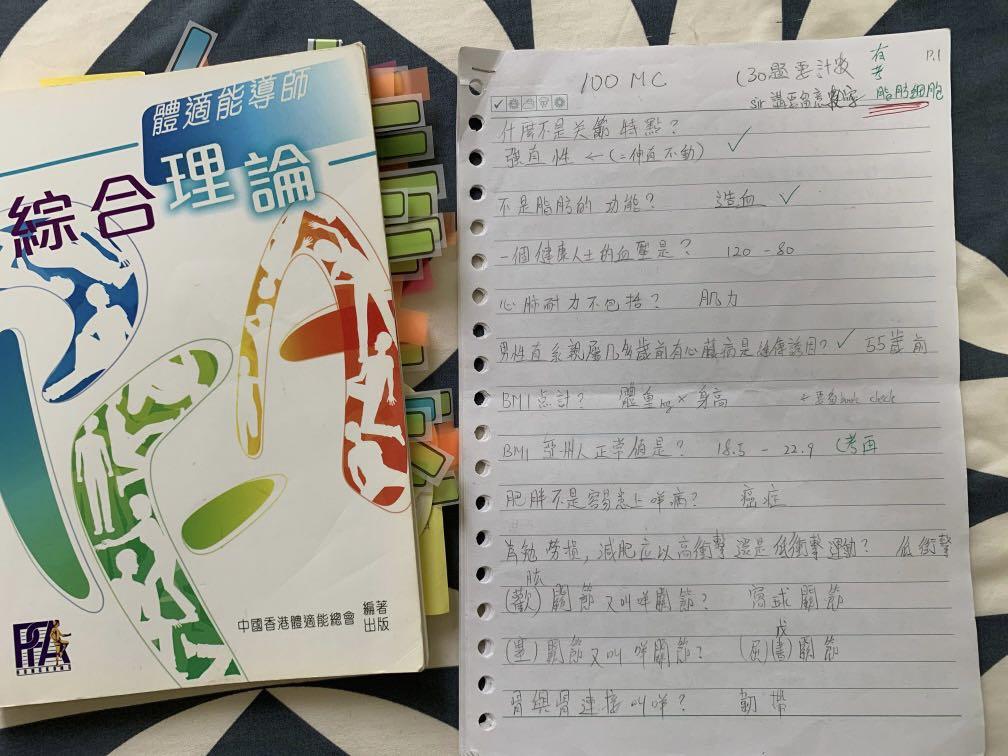 體適能導師
綜合理論
中國香港體適能總會 編著
出版
PFA
100 MC
(30題要計數
有考
P.1
sir 講要留意
脂肪細胞
什麼不是关節特點?
強直性 ← (=伸直不動) ✓
不是脂肪的功能? 造血 ✓
一個健康人士的血壓是? 120 - 80
心肺耐力不包括? 肌力
男性直系親屬几多歲前有心臟病是遺傳誘因? ✓ 55歲前
BMI 点計? 體重kg × 身高 ← 要 book check
BMI 亞州人正常值是? 18.5 - 22.9 (考再
肥胖不是容易患上咩病? 癌症
為勉勞損,減肥应以高衝擊還是低衝擊運動? 低衝擊
肱
(歡) 關節又叫咩關節? 窩球關節
戊
關節又叫咩關節? 關節
骨與骨連接叫咩? 韌帶